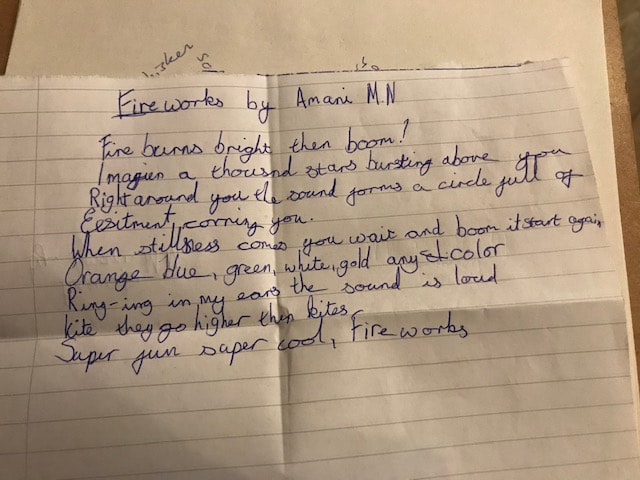 Fireworks by Amani M.N
Fire burns bright then boom!
Imagien a thousnd stars bursting above you
Right around you the sound forms a circle full of
Eesitment, corning you.
When stillness comes you wait and boom it start again
Orange blue, green, white, gold any color
Ring-ing in my ears the sound is loud
Kite they go higher then kites,
Super fun super cool, Fireworks